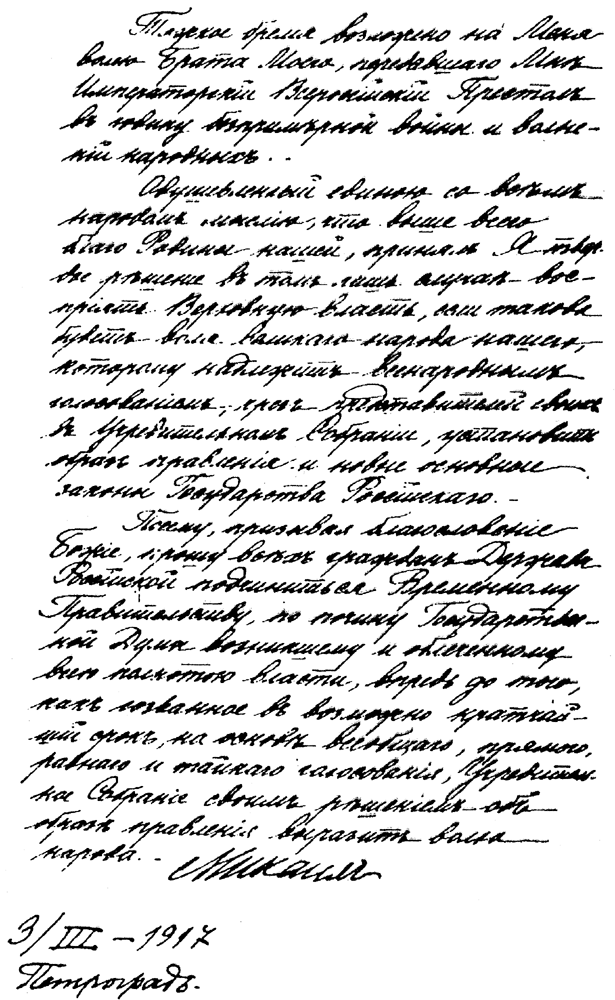 Тяжкое бремя возложено на Меня
волею Брата Моего, передавшего Мнѣ
Императорскій Всероссійскій Престолъ
въ годину безпримѣрной войны и волне-
ній народныхъ..
Одушевленный единою со всѣмъ
народомъ мыслію, что выше всего
благо Родины нашей, принялъ Я твер-
дое рѣшеніе въ томъ лишь случаѣ вос-
пріять Верховную власть, если такова
будетъ воля великаго народа нашего,
которому надлежитъ всенароднымъ
голосованіемъ, чрезъ представителей своихъ
въ Учредительномъ Собраніи, установить
образъ правленія и новые основные
законы Государства Россійскаго.-
Посему, призывая благословеніе
Божіе, прошу всѣхъ гражданъ Державы
Россійской подчиниться Временному
Правительству, по почину Государствен-
ной Думы возникшему и облеченному
всею полнотою власти, впредь до того,
какъ созванное въ возможно кратчай-
шій срокъ, на основѣ всеобщаго, прямого,
равнаго и тайнаго голосованія, Учредитель-
ное Собраніе своимъ рѣшеніемъ объ
образѣ правленія выразитъ волю
народа.-
Михаилъ
3/III - 1917
Петроградъ.